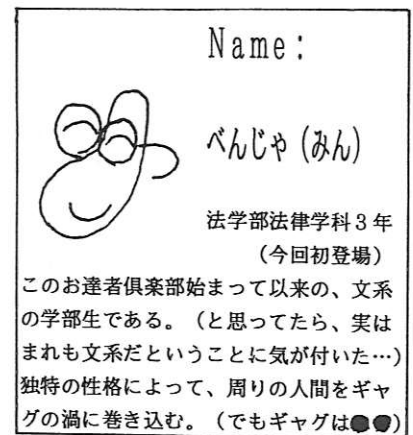 Name:
べんじゃ(みん)
法学部法律学科3年
(今回初登場)
このお達者倶楽部始まって以来の、文系
の学部生である。(と思ってたら、実は
まれも文系だということに気が付いた…)
独特の性格によって、周りの人間をギャ
グの渦に巻き込む。(でもギャグは●●)